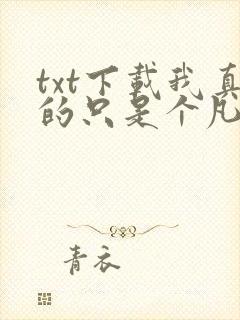 txt下载我真
的只是个凡
青衣